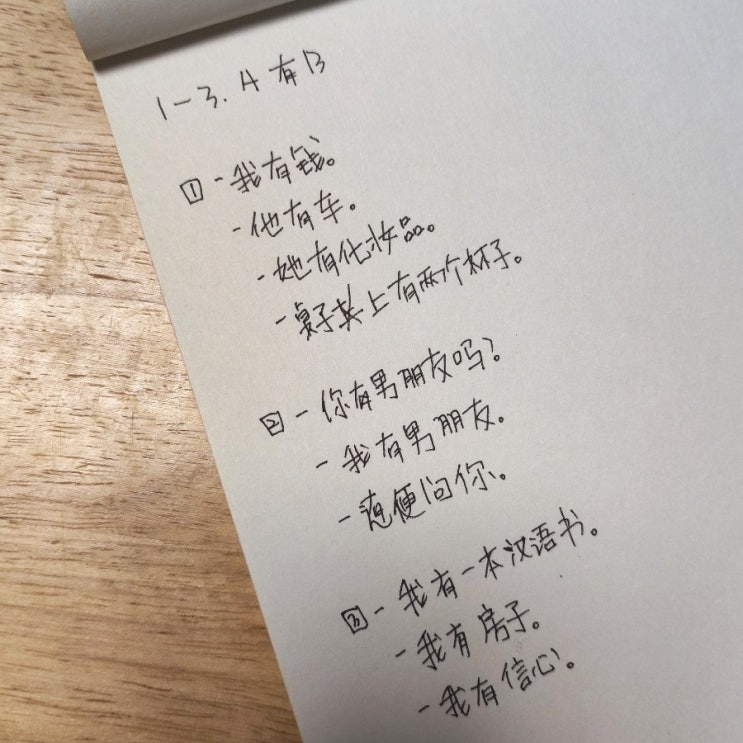 1-3. A 有 B
① - 我有钱。
- 他有车。
- 她有化妆品。
- 桌子上有两个杯子。
② - 你有男朋友吗?
- 我有男朋友。
- 随便问你。
③ - 我有一本汉语书。
- 我有房子。
- 我有信心。